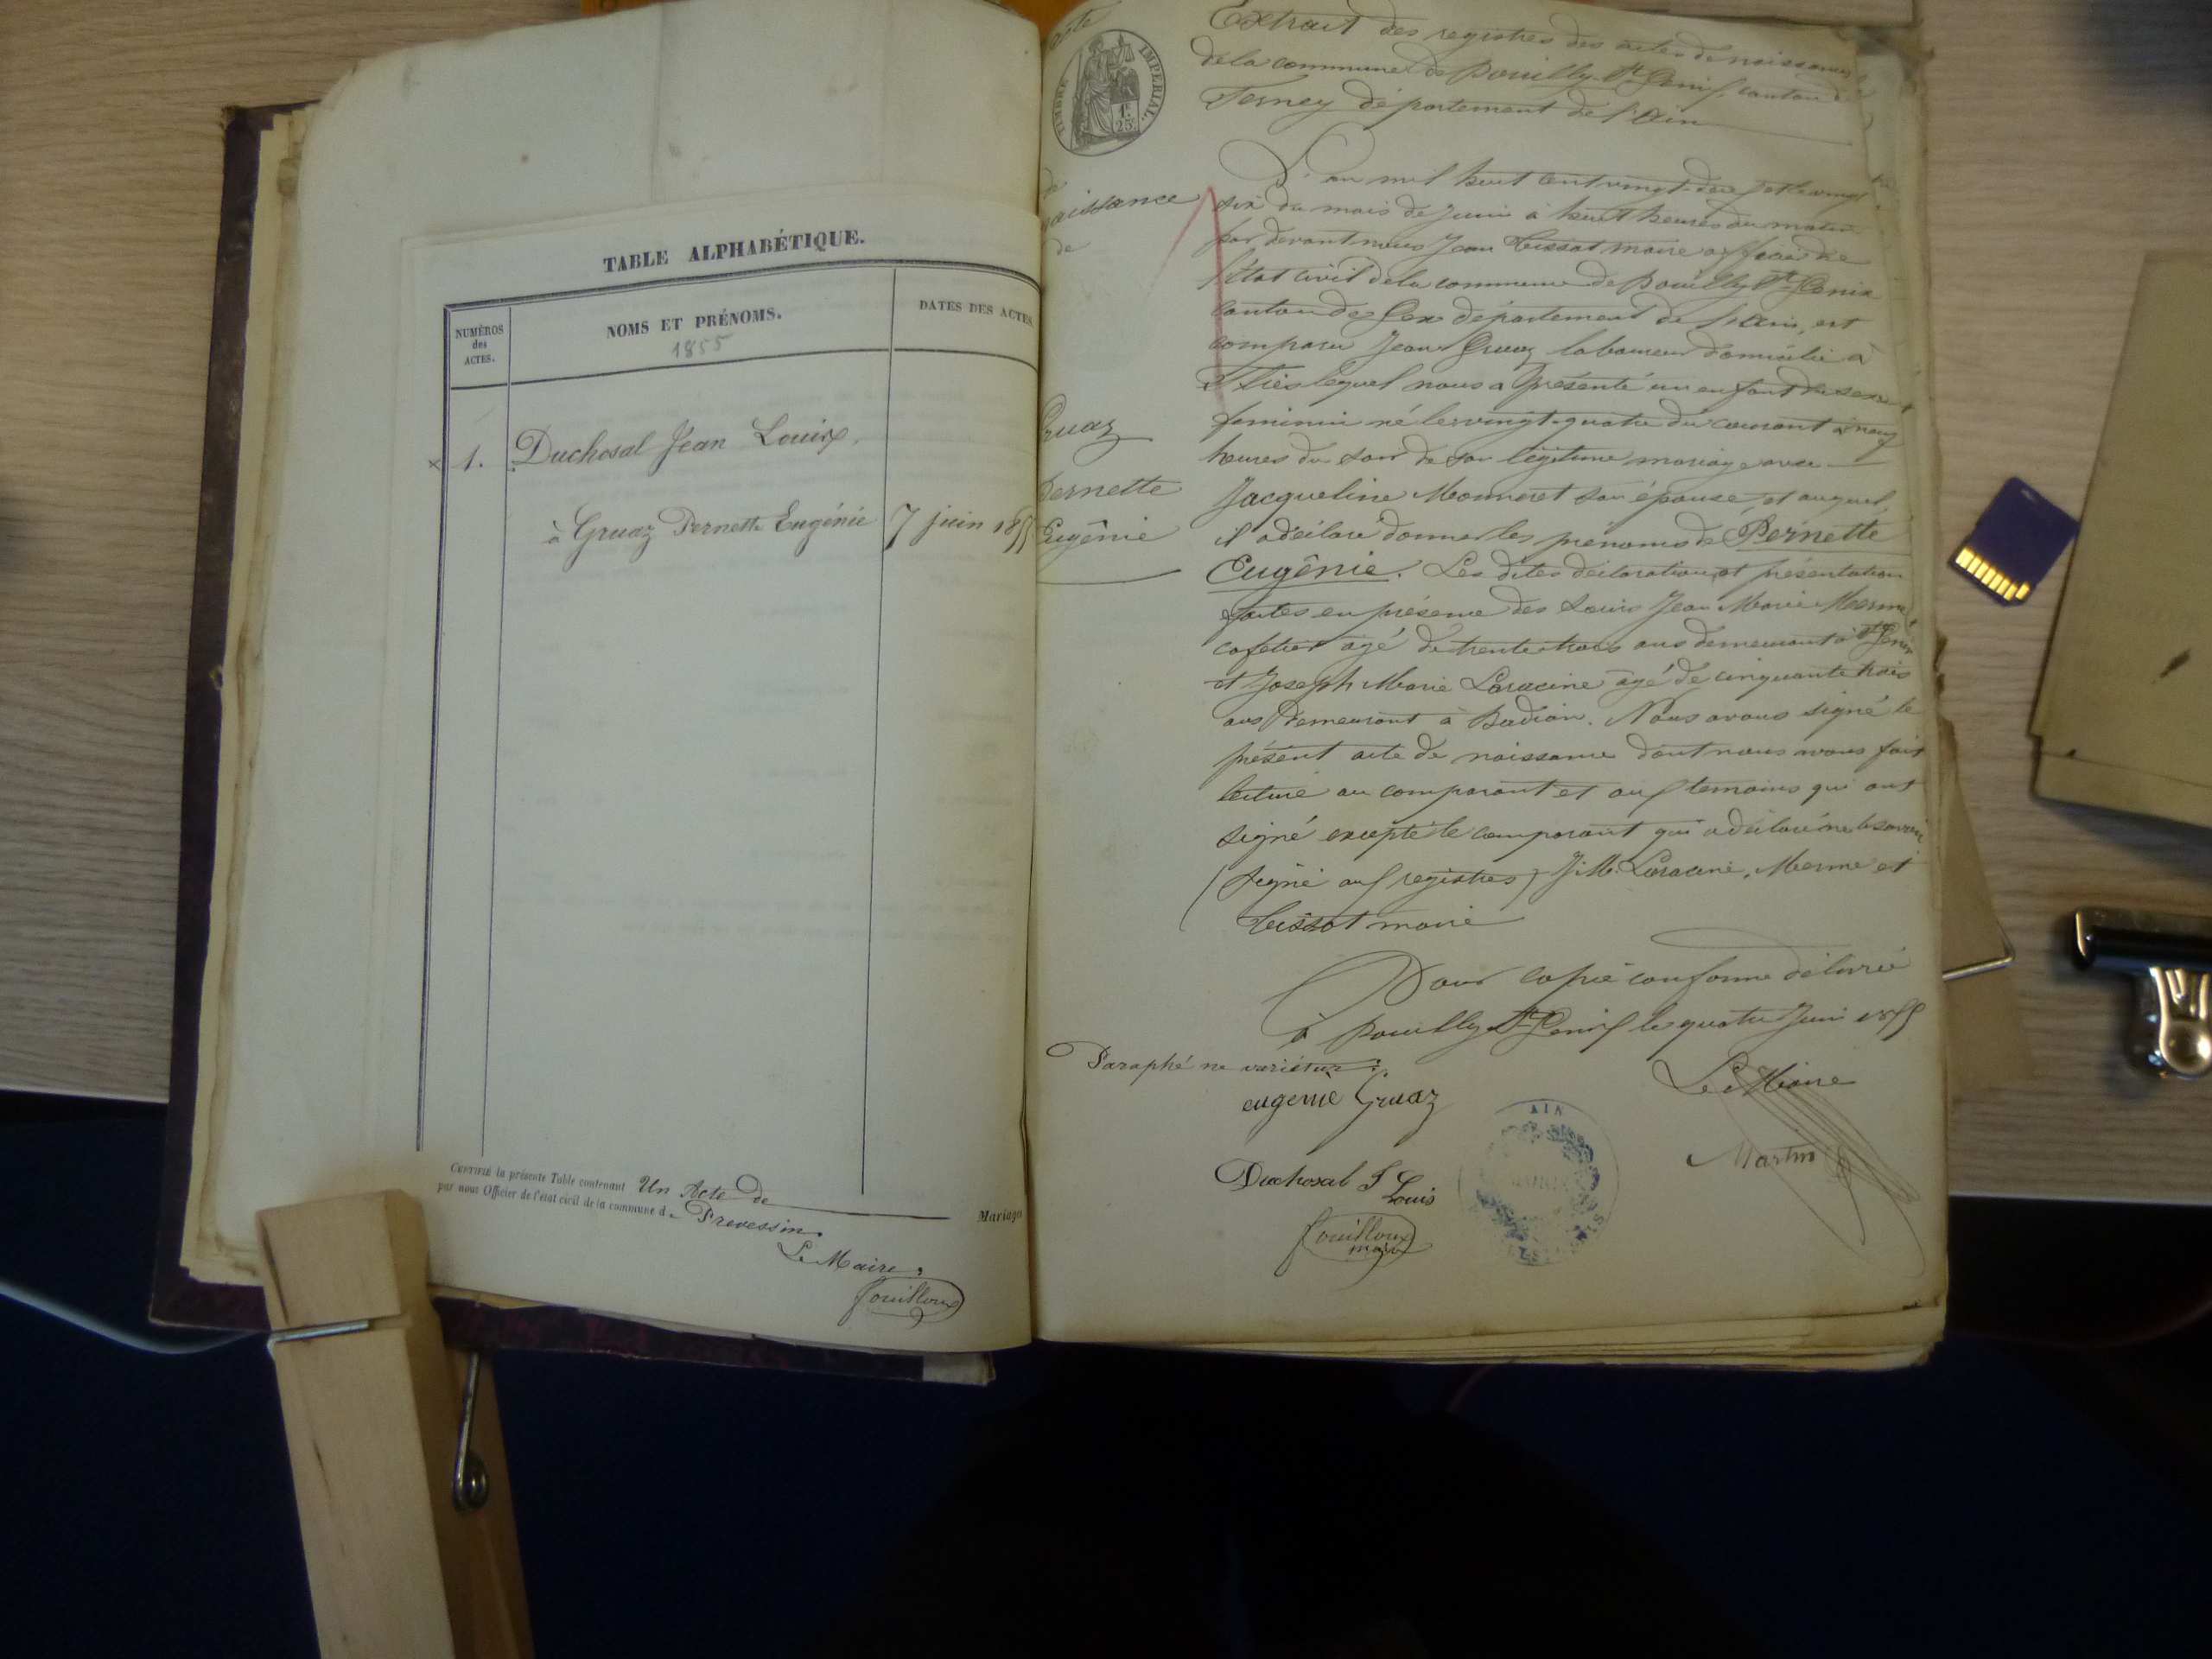 TABLE ALPHABÉTIQUE.
NUMÉROS
des
ACTES.
NOMS ET PRÉNOMS.
1855
DATES DES ACTES
x 1. Duchosal Jean Louis,
à Gruaz Pernette Eugénie 7 juin 1855
CERTIFIÉ la présente Table contenant Un Acte de Mariages
par nous Officier de l'état civil de la commune de Prevessin
Le Maire,
Fouilloux
TIMBRE IMPERIAL.
1F
25c
Extrait des registres des actes de naissances
de la commune de Pouilly St Genis, canton de
Ferney département de l'Ain
de
naissance
de
Gruaz
Pernette
Eugênie
L'an mil huit cent vingt et le vingt
six du mois de Juin à huit heures du matin
par devant nous Jean Tissot maire officier de
l'état civil de la commune de Pouilly St Genis
canton de Gex département de l'Ain, est
comparu Jean Gruaz laboureur domicilié à
lequel nous a présenté un enfant du sexe
feminin né le vingt-quatre du courant à neuf
heures du soir de son légitime mariage avec
Jacqueline Monneret son épouse, et auquel
il a déclaré donner les prénoms de Pernette
Eugênie. Les dites déclaration et présentation
faites en présence des sieurs Jean Marie Merme
cafetier agé de trente trois ans demeurant à St Genis
et Joseph Marie Laracine âgé de cinquante trois
ans demeurant à . Nous avons signé le
présent acte de naissance dont nous avons fait
lecture au comparant et aux temoins qui ont
signé excepté le comparant qui a déclaré ne le savoir
(signé aux registres) J. M. Laracine, Merme et
Tissot maire
Pour copie conforme délivrée
à Pouilly St Genis le quatre Juin 1855
Paraphé ne varietur:
Le Maire
eugenie Gruaz
Martin
Duchosal J
Louis
Fouilloux
maire
AIN